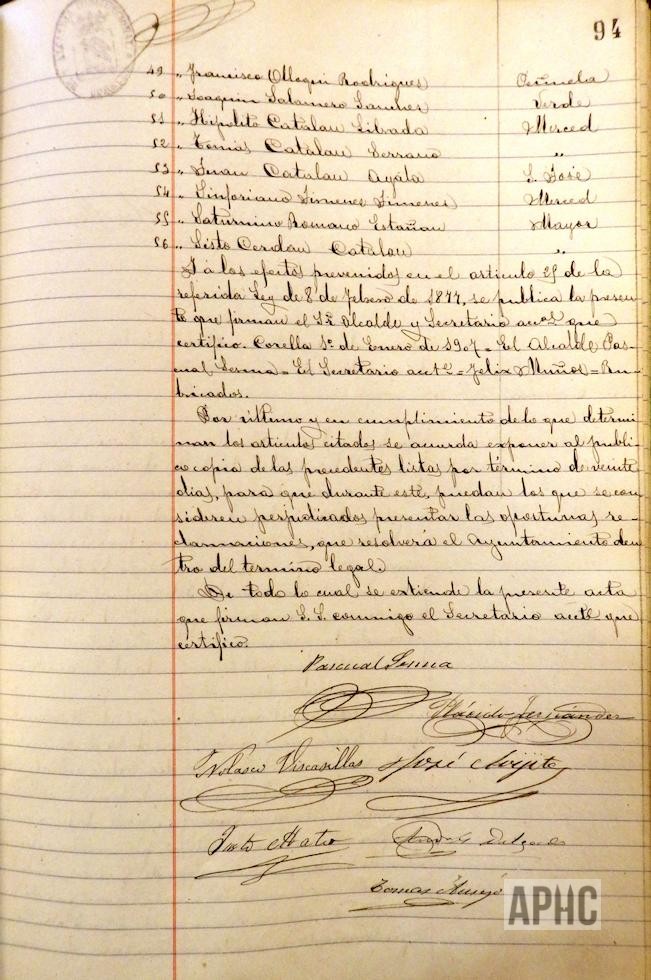 94
49 " Francisco Olloqui Rodrigues Peñuela
50 " Joaquin Salamero Sanches Verde
51 " Hipolito Catalan Librada Merced
52 " Tomas Catalan Serrano "
53 " Juan Catalan Ayala S. José
54 " Sinforiano Jimenes Jimenes Merced
55 " Saturnino Romano Estañan Mayor
56 " Sisto Cerdan Catalan "
Y á los efectos prevenidos en el articulo 25 de la
referida Ley de 8 de Febrero de 1877, se publica la presen-
te que firman el Sr. Alcalde y Secretario acctal que
certifico. Corella 1º de Enero de 1907 = El Alcalde Pas-
cual Senna = El Secretario acctl = Felix Muños = Ru-
bricados.
Por último y en cumplimiento de lo que determi-
nan los articulos citados se acuerda exponer al publi-
co copia de las precedentes listas por término de veinte
dias, para que durante este, puedan los que se con
sideren perjudicados presentar las oportunas re-
clamaciones, que resolverá el Ayuntamiento den
tro del termino legal.
De todo lo cual se extiende la presente acta
que firman S. S. conmigo el Secretario acctl que
certifico.
Pascual Senna
Plácido Fernández
Nolasco Viscasillas José
Justo Mateo Delgado
Tomas
APHC